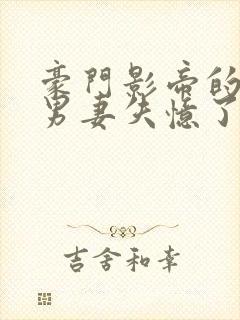 豪門影帝的
男妻失憶了
吉舍和幸